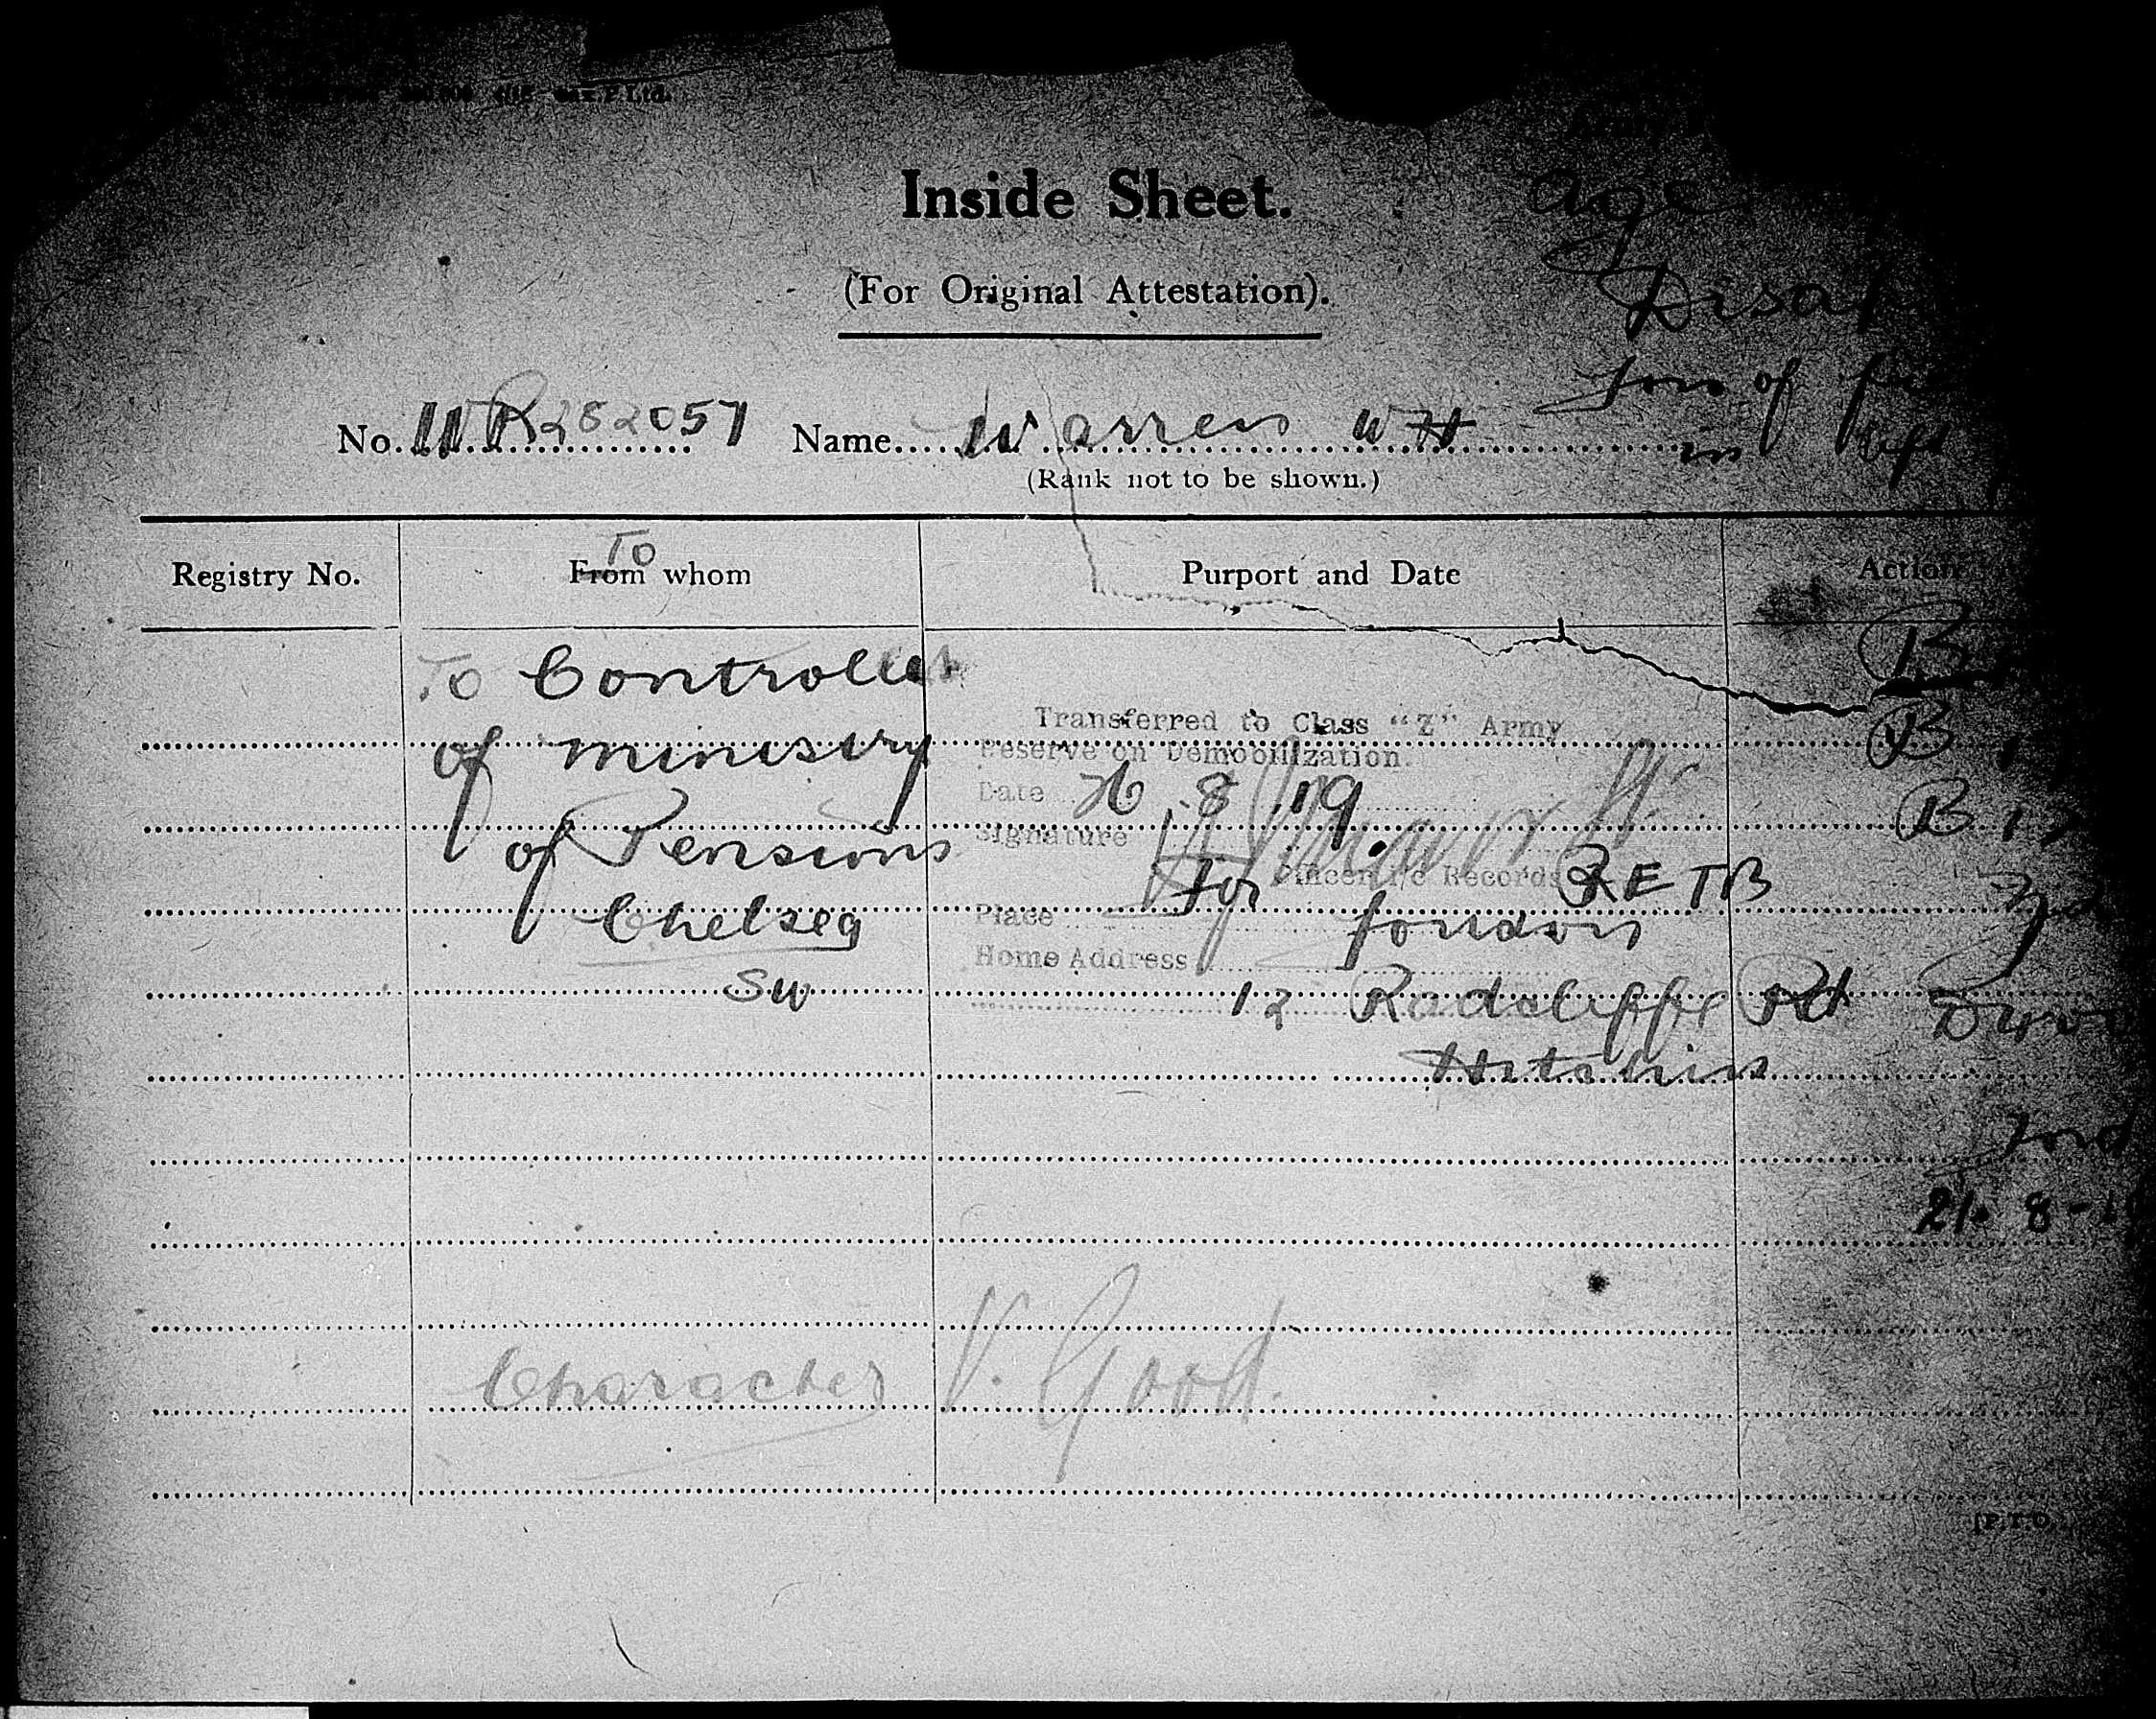 Inside Sheet.
Age
(For Original Attestation).
loss of
in left
No. WR282057 Name Warren W H
(Rank not to be shown.)
To
Registry No. From whom Purport and Date Action
To Controller
of ministry
of Pensions
Chelsea
SW
Transferred to Class "Z" Army
Reserve on Demobilization.
Date 26.8.19.
Signature
For Officer i/c Records RETB
Place London
Home Address
12 Radcliffe Rd
Hitchin
B
B
B
21.8-19
Character V. Good.
[P.T.O.